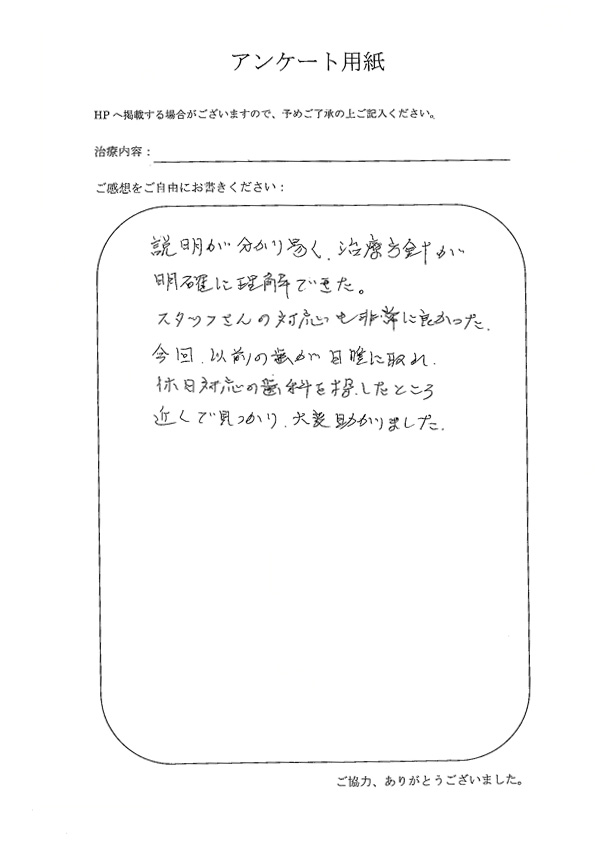 アンケート用紙
HPへ掲載する場合がございますので、予めご了承の上ご記入ください。
治療内容:
ご感想をご自由にお書きください:
説明が分かり易く、治療方針が
明確に理解できた。
スタッフさんの対応も非常に良かった。
今回、以前の歯が日曜に取れ、
休日対応の歯科を探したところ
近くで見つかり、大変助かりました。
ご協力、ありがとうございました。